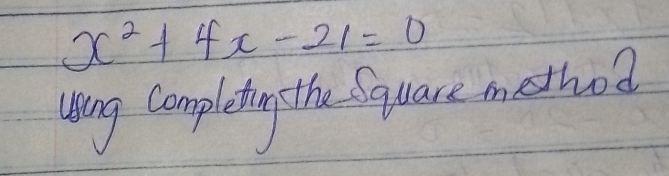 x² + 4x - 21 = 0
using completing the Square method